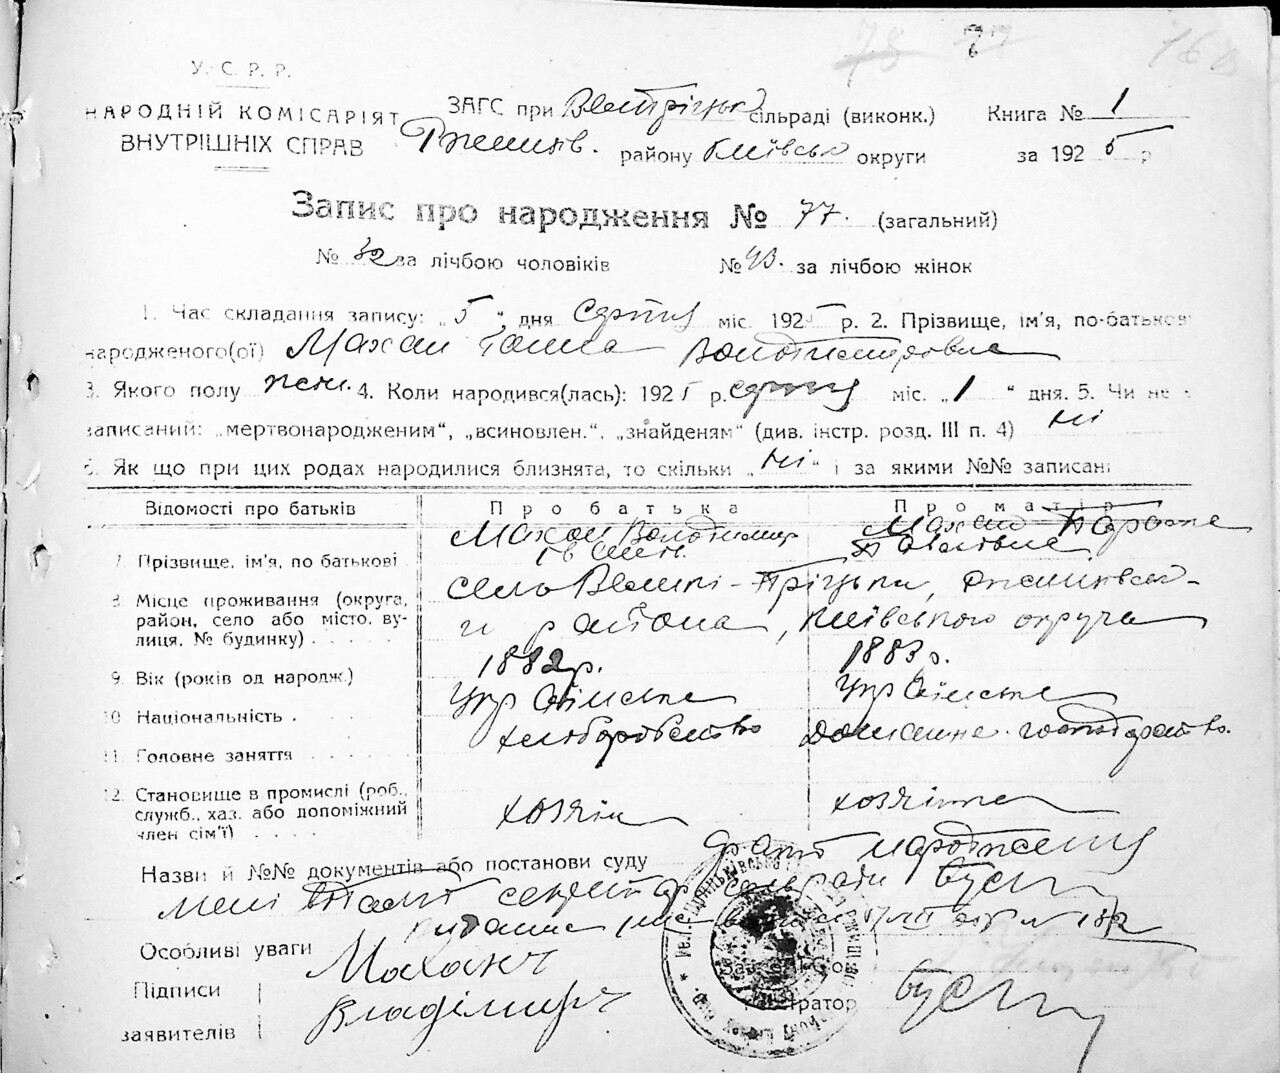 У. С. Р. Р.
НАРОДНІЙ КОМІСАРІЯТ
ВНУТРІШНІХ СПРАВ
ЗАГС при сільраді (виконк.)
Книга № 1
району Київсько округи
за 1925 р
Запис про народження № 77. (загальний)
№ 32 за лічбою чоловіків
№ 43. за лічбою жінок
1. Час складання запису: „5“ дня серпня міс. 1925 р. 2. Прізвище, ім'я, по-батькові
народженого(ої) Махан Володимировна
3. Якого полу жен. 4. Коли народився(лась): 1925 р. серпня міс. „1“ дня. 5. Чи не
записаний: „мертвонародженим“, „всиновлен.“, „знайденям“ (див. інстр. розд. III п. 4) Ні
6. Як що при цих родах народилися близнята, то скільки „Ні“ і за якими №№ записані
Відомості про батьків
Про батька
Про матір
7. Прізвище, ім'я, по батькові
Махан Володимир
Махан Параска
Павлівна
8. Місце проживання (округа, район, село або місто, вулиця, № будинку)
село Великі-Пріцьки,
района, Київського округа
9. Вік (років од народж.)
1882 р.
1883 р.
10. Національність
Українська
Українська
11. Головне заняття
хлиборобство
Домашнє господарство.
12. Становище в промислі (роб., служб., хаз. або допоміжний член сім'ї)
хозяін
хозяінка
Назви й №№ документів або постанови суду
факт народження
секретар сельради Бусы
Особливі уваги
Підписи
заявителів
Маханъ
Владімиръ